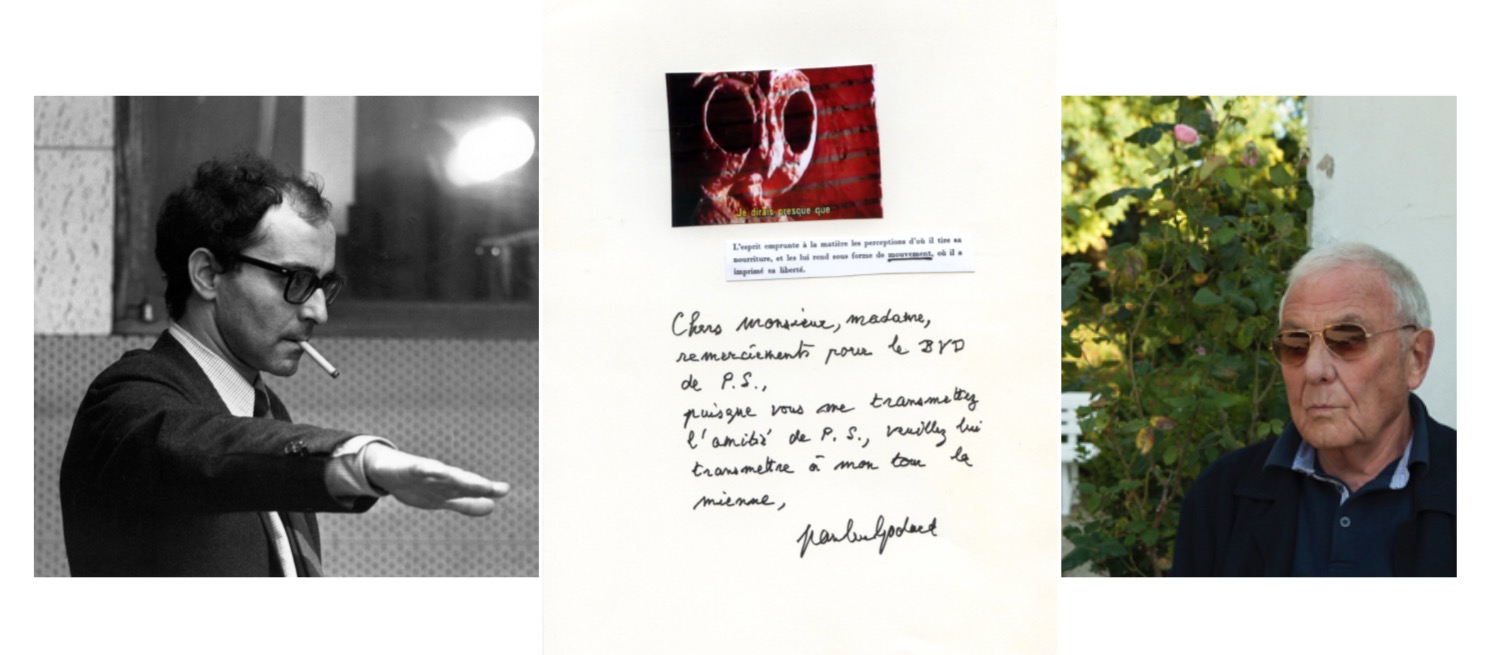 Je dirais presque que
L'esprit emprunte à la matière les perceptions d'où il tire sa
nourriture, et les lui rend sous forme de mouvement, où il a
imprimé sa liberté.
Chers monsieur, madame,
remerciements pour le BVD
de P.S.,
puisque vous me transmettez
l'amitié de P. S., veuillez lui
transmettre à mon tour la
mienne,
JeanLucGodard